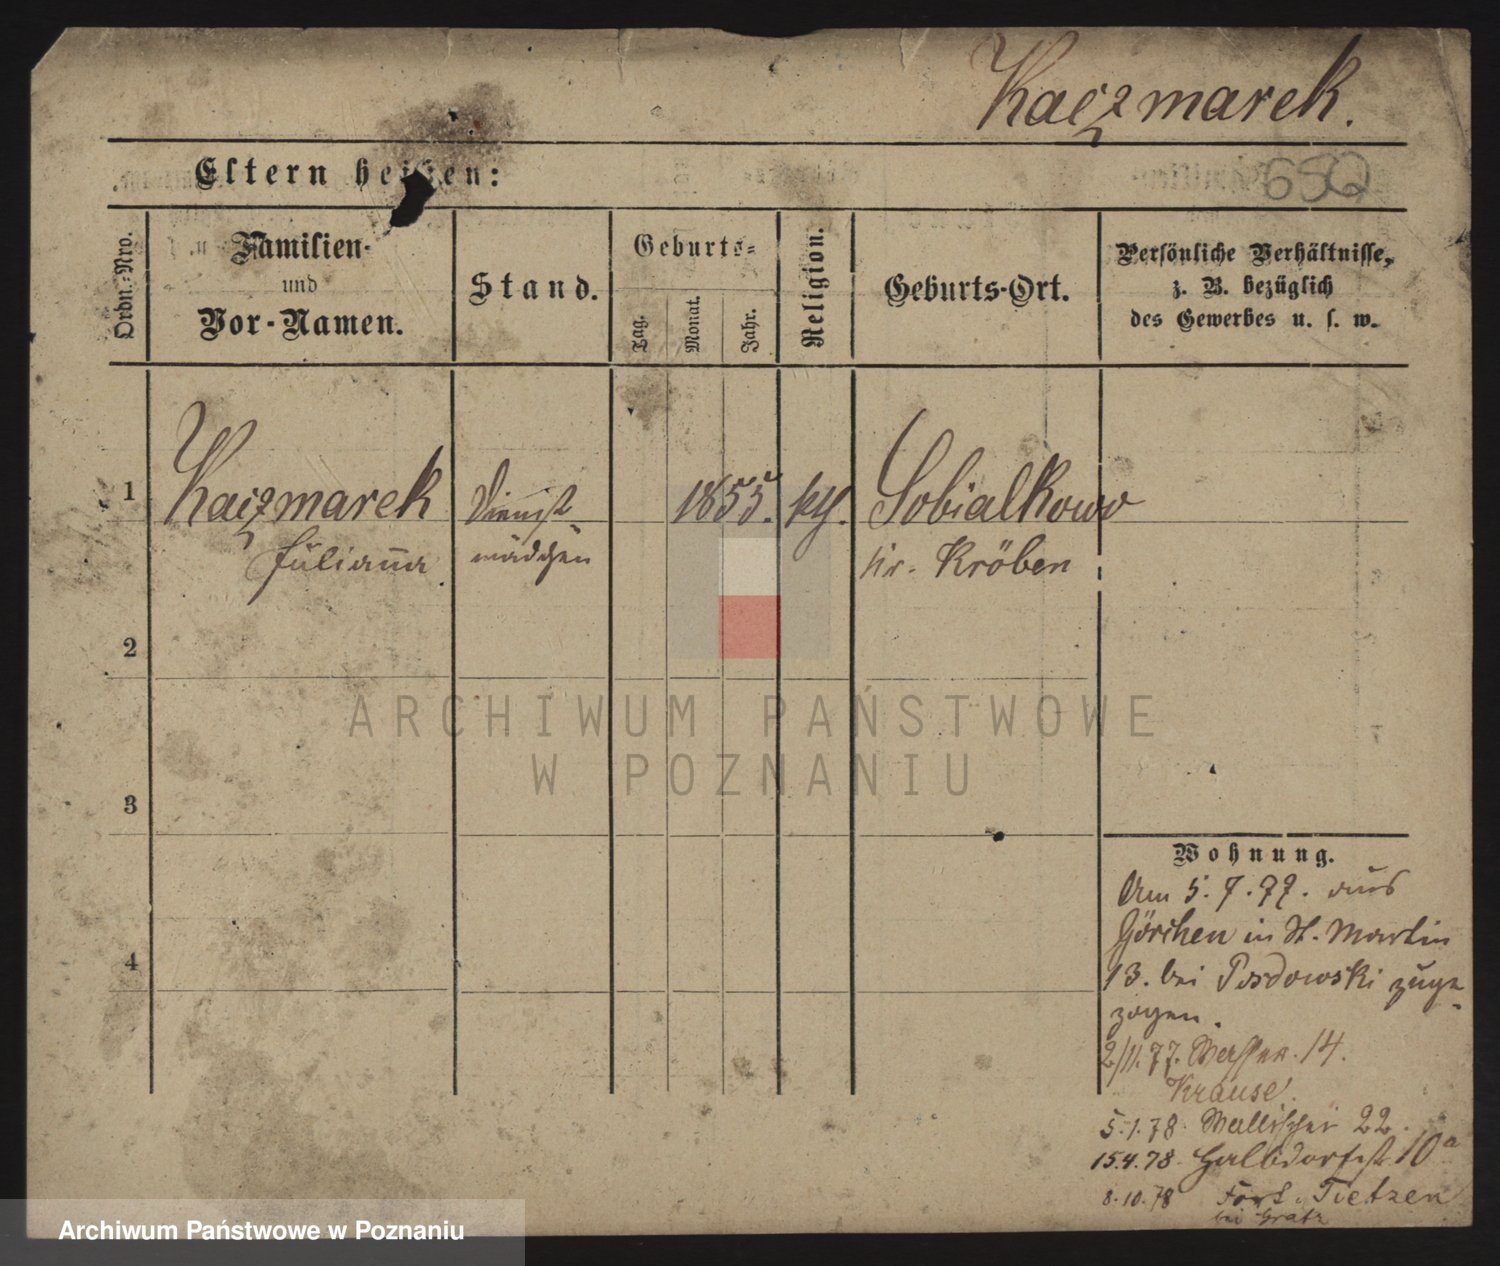 Kaczmarek.
Eltern heißen:
652
Ordn.-Nro.
Familien-
und
Vor-Namen.
Stand.
Geburts-
Tag.
Monat.
Jahr.
Religion.
Geburts-Ort.
Persönliche Verhältnisse,
z. B. bezüglich
des Gewerbes u. s. w.
1
Kaczmarek
Julianna
Dienst
mädchen
1855.
kth.
Sobialkowo
Kr. Kröben
2
3
4
ARCHIWUM PAŃSTWOWE
W POZNANIU
Wohnung.
Am 5.7.77. aus
Görchen in St. Martin
13. bei zuge-
zogen.
2/11.77. Wasserstr. 14.
Krause.
5.1.78. Wallischei 22.
15.4.78. Halbdorfst 10a
8.10.78 Fort Tietzen
bei Gratz
Archiwum Państwowe w Poznaniu